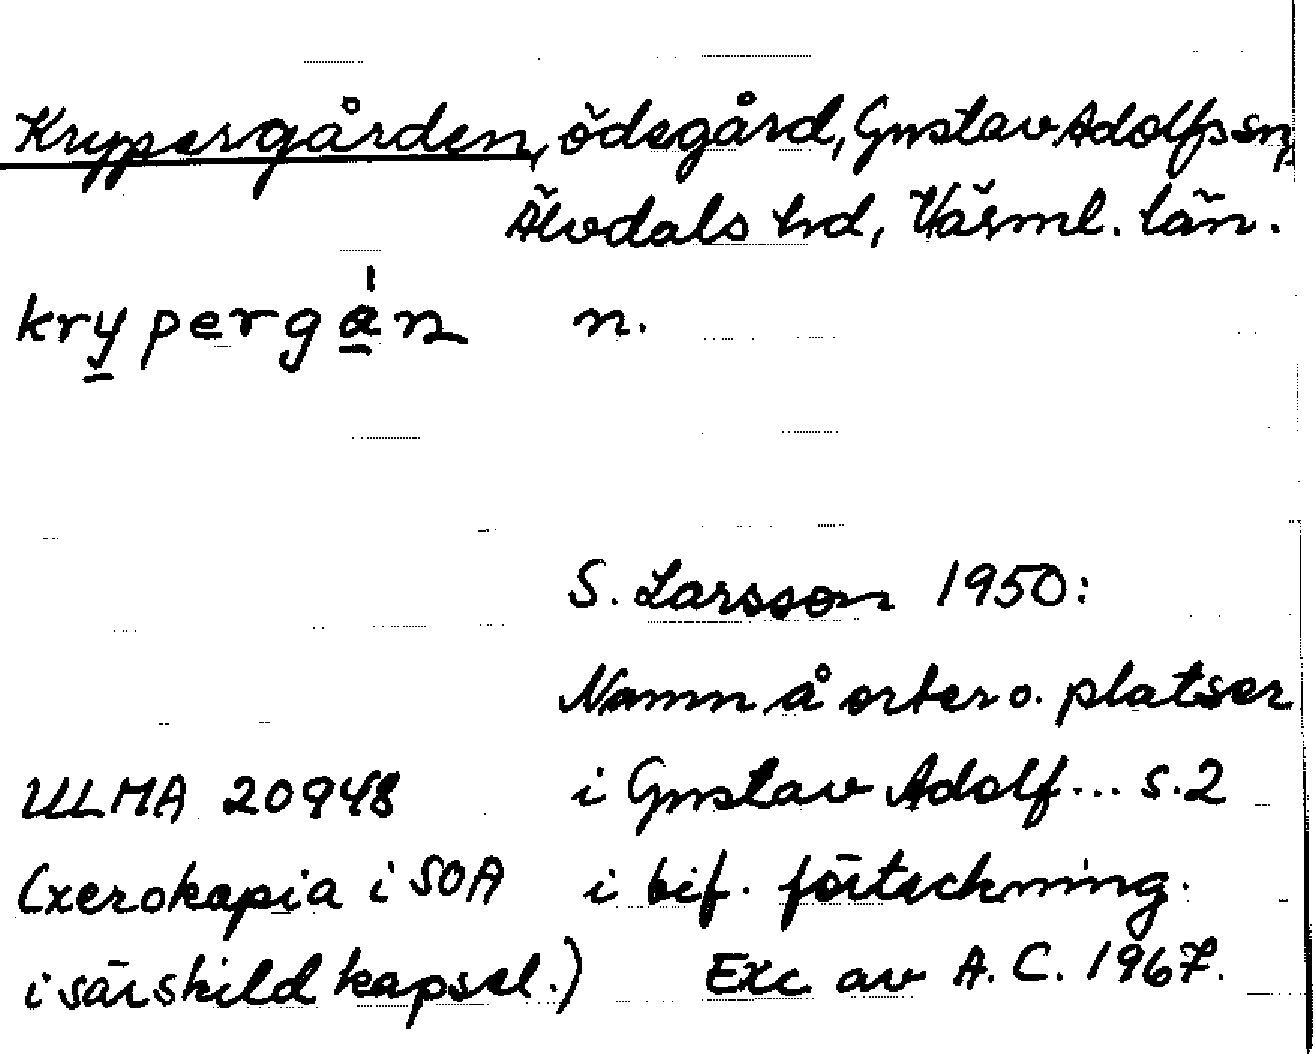 Krypergården, ödegård, Gustav Adolfs sn,
Älvdals hd, Värml. län.
krypergån n.
S. Larsson 1950:
Namn å orter o. platser
i Gustav Adolf... s.2
i bif. förteckning.
ULMA 20948
(xerokopia i SOA
i särskild kapsel.)
Exc av A. C. 1967.